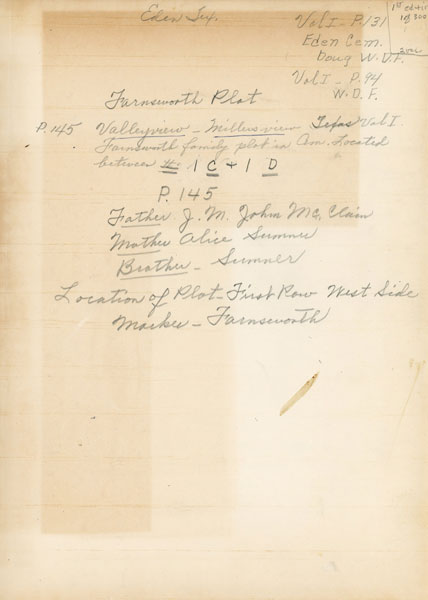 Eden Tex.
Vol I - P. 131
1st edition
1 of 300
Eden Cem.
Doug W. D. F.
Vol I - P. 94
W. D. F.
Farnsworth Plot
P. 145 Valleyview - Millersview Texas Vol I.
Farnsworth family plot in Cem. Located
between # 1 C + 1 D
P. 145
Father J. M. John Mc. Clain
Mother Alice Sumner
Brother - Sumner
Location of Plot - First Row West Side
Marker - Farnsworth